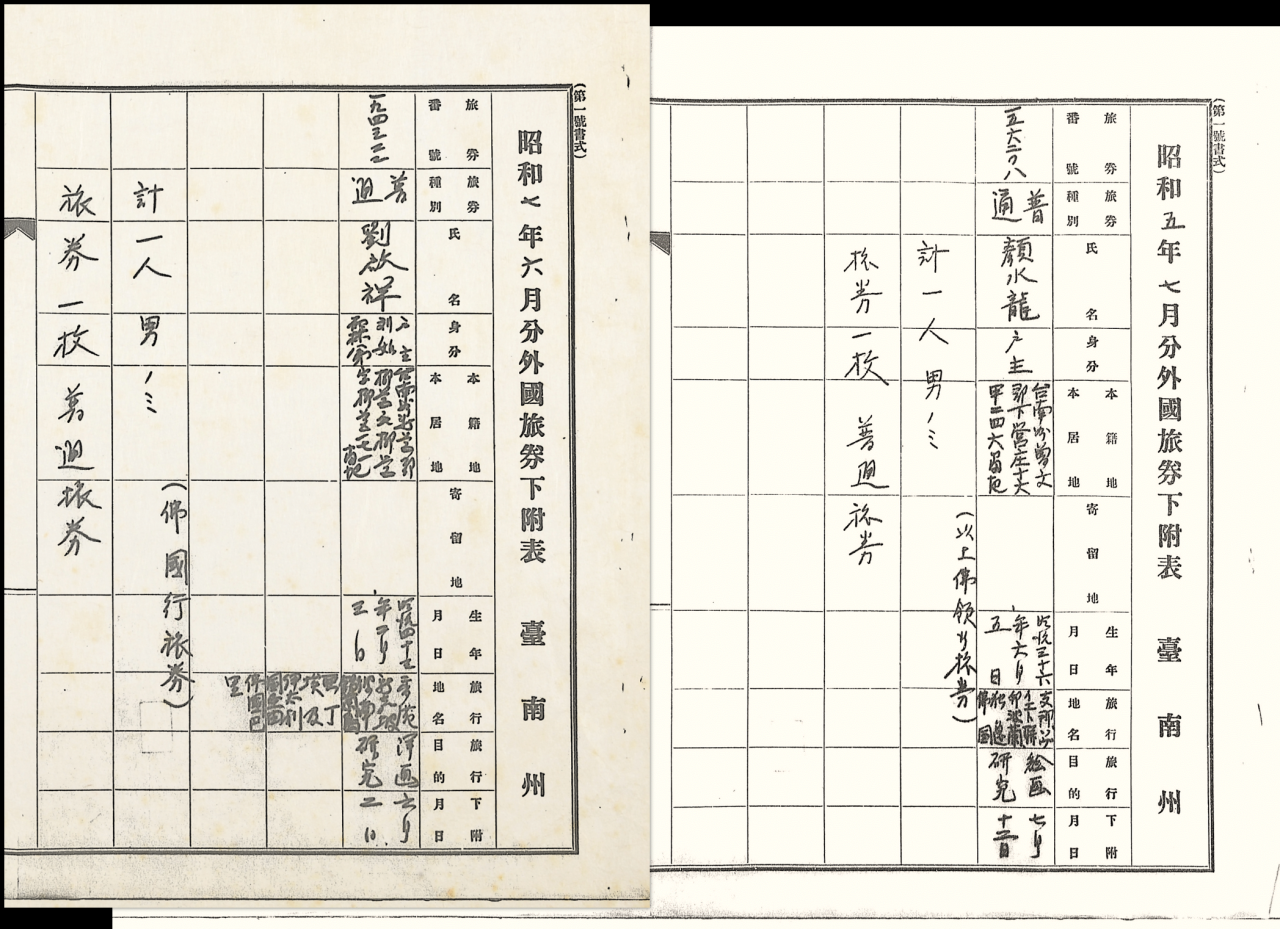 (第一號書式)
昭和五年七月分外國旅券下附表　臺南州
旅券番號
旅券種別
氏名
身分
本籍地
本居地
寄留地
生年月日
旅行地名
旅行目的
下附月日
普通
顏水龍
戶主
台南州曾文
郡下營庄
甲二四六番地
年六月
五日
佛國
絵画
研究
七月
計一人男ノミ
(以上佛領行旅券)
旅券一枚　普通旅券
(第一號書式)
昭和七年六月分外國旅券下附表　臺南州
旅券番號
旅券種別
氏名
身分
本籍地
本居地
寄留地
生年月日
旅行地名
旅行目的
下附月日
一九四三二二
普通
劉啟祥
戶主
年二月
三日
埃及
洋画
研究
六月
二日
計一人男ノミ
(佛國行旅券)
旅券一枚　普通旅券